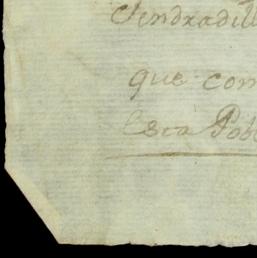 Sendradill
que com
Esta Pobl